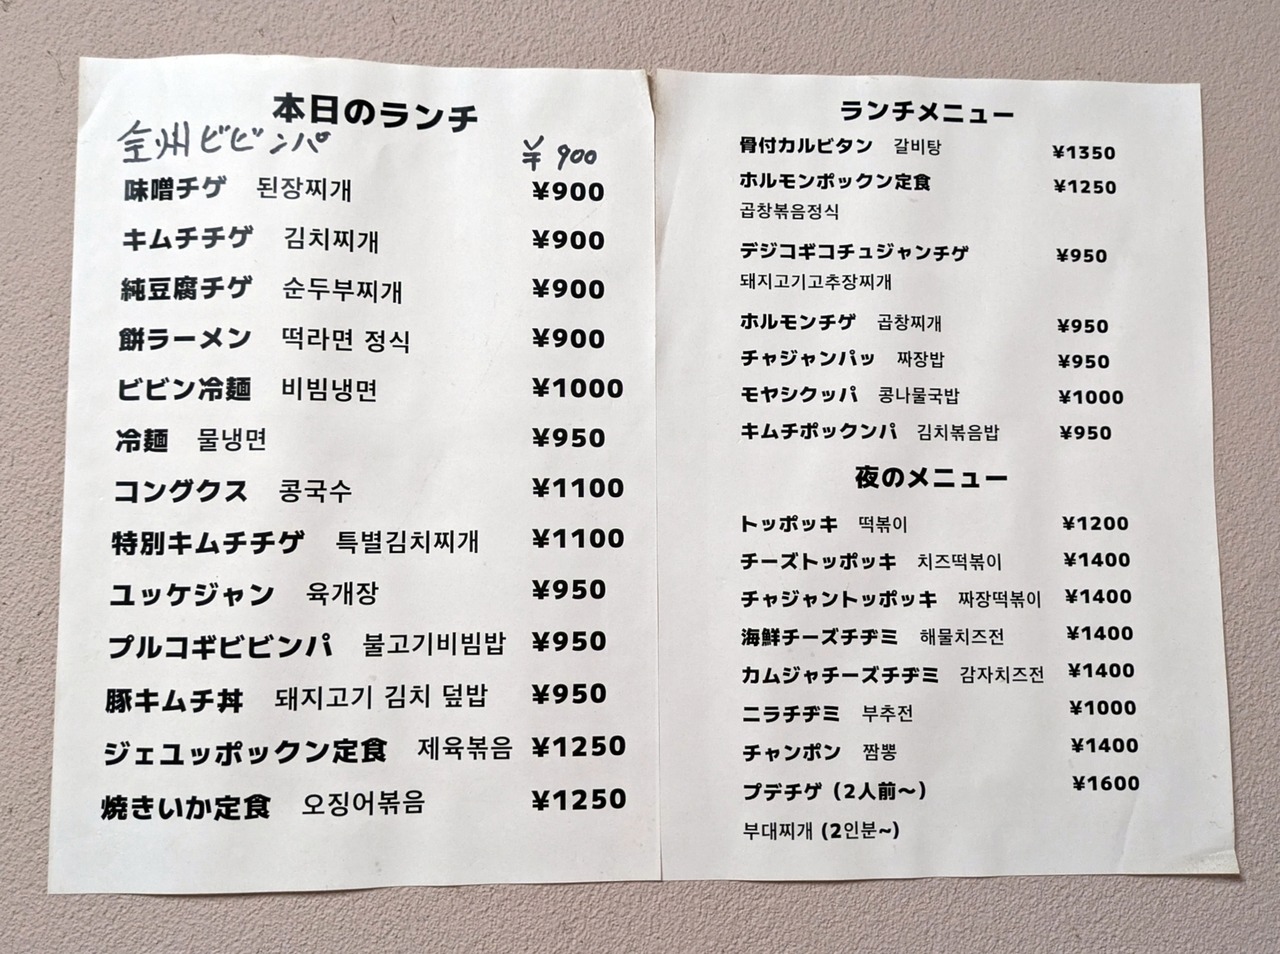 本日のランチ
全州ビビンパ ¥900
味噌チゲ 된장찌개 ¥900
キムチチゲ 김치찌개 ¥900
純豆腐チゲ 순두부찌개 ¥900
餅ラーメン 떡라면 정식 ¥900
ビビン冷麺 비빔냉면 ¥1000
冷麺 물냉면 ¥950
コングクス 콩국수 ¥1100
特別キムチチゲ 특별김치찌개 ¥1100
ユッケジャン 육개장 ¥950
プルコギビビンパ 불고기비빔밥 ¥950
豚キムチ丼 돼지고기 김치 덮밥 ¥950
ジェユッポックン定食 제육볶음 ¥1250
焼きいか定食 오징어볶음 ¥1250
ランチメニュー
骨付カルビタン 갈비탕 ¥1350
ホルモンポックン定食 ¥1250
곱창볶음정식
デジコギコチュジャンチゲ ¥950
돼지고기고추장찌개
ホルモンチゲ 곱창찌개 ¥950
チャジャンパッ 짜장밥 ¥950
モヤシクッパ 콩나물국밥 ¥1000
キムチポックンパ 김치볶음밥 ¥950
夜のメニュー
トッポッキ 떡볶이 ¥1200
チーズトッポッキ 치즈떡볶이 ¥1400
チャジャントッポッキ 짜장떡볶이 ¥1400
海鮮チーズチヂミ 해물치즈전 ¥1400
カムジャチーズチヂミ 감자치즈전 ¥1400
ニラチヂミ 부추전 ¥1000
チャンポン 짬뽕 ¥1400
プデチゲ（2人前〜） ¥1600
부대찌개 (2인분~)